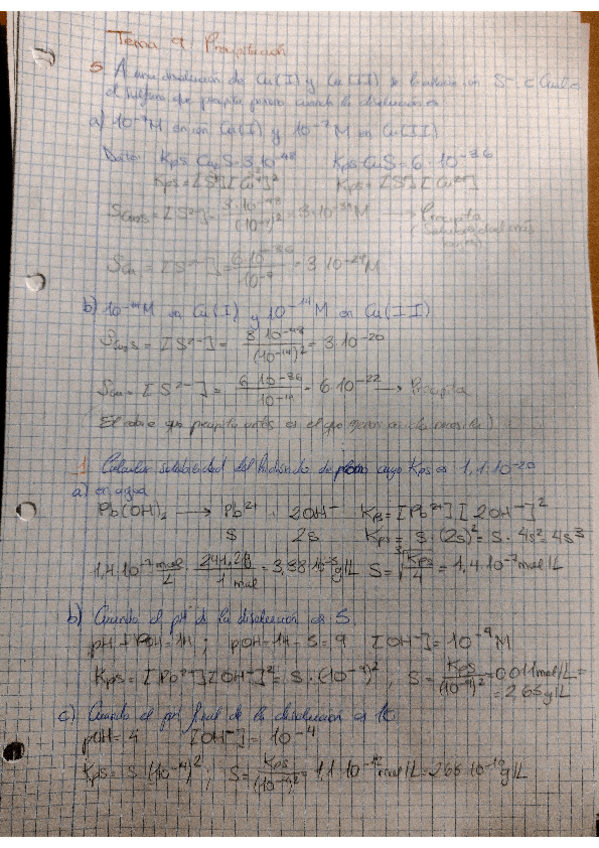 Tema 9 Precipitación
5. A una disolución de Cu(I) y Cu(II) se le añade ion S⁻ ¿Cuál
el sulfuro que precipita primero cuando la disolución es
a) 10⁻⁴M en ion Cu(I) y 10⁻⁷ M en Cu(II)
Datos: Kps Cu₂S = 3·10⁻⁴⁸ Kps CuS = 6·10⁻³⁶
Kps = [S²⁻][Cu⁺]² Kps = [S²⁻][Cu²⁺]
[S²⁻] = = 3·10⁻³⁹M → Precipita
(Solubilidad más
[S²⁻] = = 3·10⁻²⁹M
b) M en Cu(I) y 10⁻¹⁴M en Cu(II)
S Cu₂S = [S²⁻] = 3·10⁻⁴⁸/(10⁻¹⁴)² = 3·10⁻²⁰
[S²⁻] = 6·10⁻³⁶/10⁻¹⁴ = 6·10⁻²² → Precipita
(El cobre que precipita antes es el que menos)
1. Calcular solubilidad del hidróxido de plomo cuyo Kps es 1,1·10⁻²⁰
a) en agua
Pb(OH)₂ → Pb²⁺ + 2OH⁻ Kps = [Pb²⁺][2OH⁻]²
S 2S Kps = S·(2S)² = S·4S² = 4S³
1,4·10⁻⁷ mol/L · 241,2g/1 mol = 3,38·10⁻⁵ g/L S = ∛(Kps/4) = 1,4·10⁻⁷ mol/L
b) Cuando el pH de la disolución es 5
pH + pOH = 14; pOH = 14 - 5 = 9 [OH⁻] = 10⁻⁹M
Kps = [Pb²⁺][OH⁻]² = S·(10⁻⁹)²; S = Kps/(10⁻⁹)² = 0,011 mol/L =
= 2,65g/L
c) Cuando el pH final de la disolución es 10
pOH = 4 [OH⁻] = 10⁻⁴
Kps = S·(10⁻⁴)²; S = Kps/(10⁻⁴)² = 1,1·10⁻¹² mol/L = 2,65·10⁻¹⁰ g/L